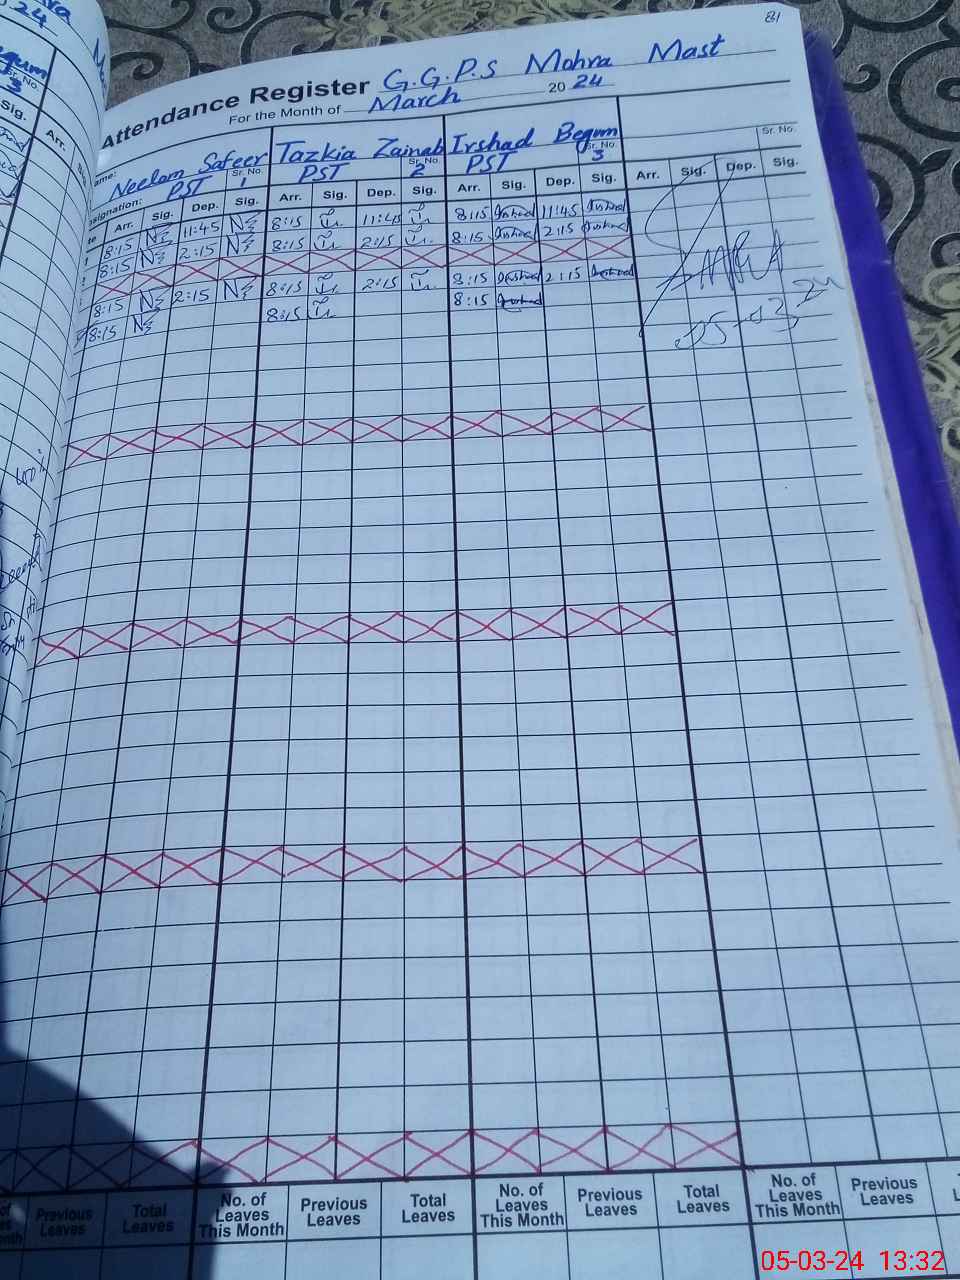 81
Attendance Register G.G.P.S Mohra Mast
For the Month of March 2024
Neelam Safeer Tazkia Zainab Irshad Begum
PST Sr. No. 1 PST Sr. No. 2 PST Sr. No. 3 Sr. No.
Arr. Sig. Dep. Sig. Arr. Sig. Dep. Sig. Arr. Sig. Dep. Sig. Arr. Sig. Dep. Sig.
8:15 11:45 8:15 11:45 8:15 Irshad 11:45 Irshad
8:15 2:15 8:15 2:15 8:15 Irshad 2:15 Irshad
8:15 2:15 8:15 2:15 8:15 Irshad 2:15 Irshad
8:15 8:15 8:15 Irshad
Previous Leaves Total Leaves No. of Leaves This Month Previous Leaves Total Leaves No. of Leaves This Month Previous Leaves Total Leaves No. of Leaves This Month Previous Leaves
05-03-24 13:32